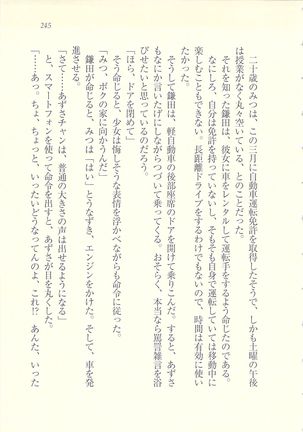 245
二十歳のみつは、この三月に自動車運転免許を取得したそうで、しかも土曜の午後
は授業がなく丸々空いている、とのことだった。
それを知った鎌田は、彼女に車をレンタルして運転手をするよう命じたのである。
なにしろ、自分は免許を持っていないし、そもそも自身で運転していては移動中に
楽しむこともできない。長距離ドライブをするわけでもないので、時間は有効に使い
たかった。
そうして鎌田は、軽自動車の後部座席のドアを開けて乗りこんだ。すると、あずさ
もなにか言いたげにしながらつづいて乗ってくる。おそらく、本当なら罵詈雑言を浴
びせたいと思っているのだろう。
「ほら、ドアを閉めて」
そう命じると、少女は悔しそうな表情を浮かべながらも命令に従った。
「みつ、ボクの家に向かうんだ」
鎌田が命じると、みつは「はい」とうなずき、エンジンをかけた。そして、車を発
進させる。
「さて……あずさチャンは、普通の大きさの声は出せるようになる」
と、スマートフォンを使って命令を出すと、あずさが目を丸くした。
「……あっ。ちょ、ちょっと、いったいどうなってんのよ、これ!? あんた、いった